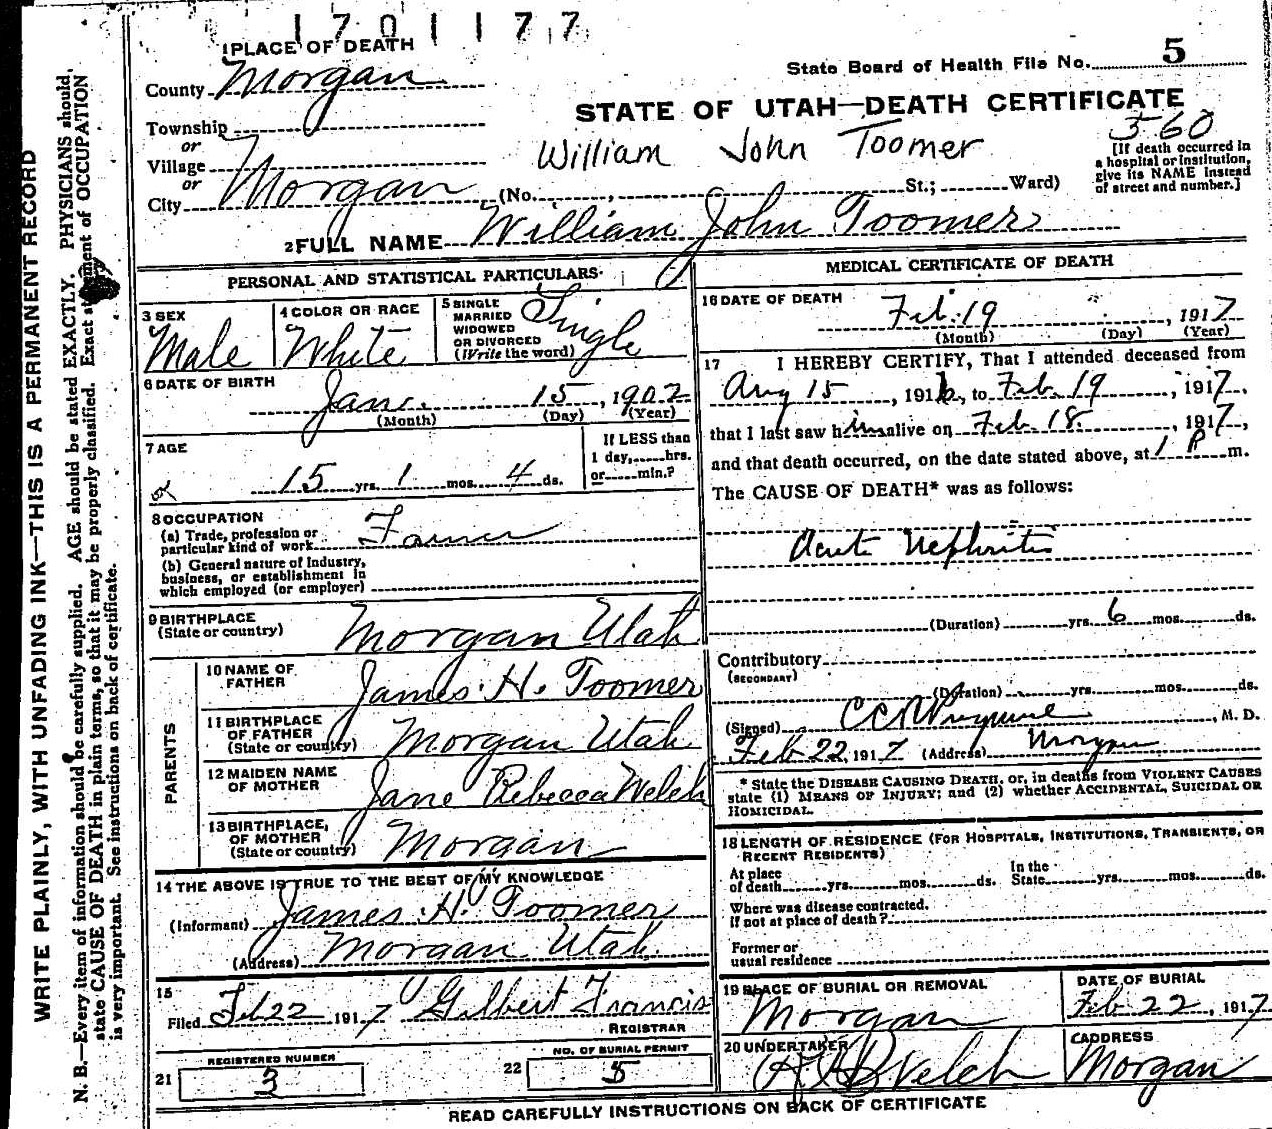 1701177
1 PLACE OF DEATH
County Morgan
State Board of Health File No. 5
STATE OF UTAH—DEATH CERTIFICATE
Township
or
Village
or
City Morgan (No. , St.; Ward)
William John Toomer
560
[If death occurred in
a hospital or institution,
give its NAME instead
of street and number.]
2 FULL NAME William John Toomer
PERSONAL AND STATISTICAL PARTICULARS
3 SEX
Male
4 COLOR OR RACE
White
5 SINGLE
MARRIED
WIDOWED
OR DIVORCED
(Write the word)
Single
6 DATE OF BIRTH
Jan. 15, 1902
(Month) (Day) (Year)
7 AGE
15 yrs. 1 mos. 4 ds.
If LESS than
1 day,......hrs.
or......min.?
8 OCCUPATION
(a) Trade, profession or
particular kind of work Farmer
(b) General nature of Industry,
business, or establishment in
which employed (or employer)
9 BIRTHPLACE
(State or country) Morgan Utah
PARENTS
10 NAME OF
FATHER
James H. Toomer
11 BIRTHPLACE
OF FATHER
(State or country) Morgan Utah
12 MAIDEN NAME
OF MOTHER
Jane Rebecca Welch
13 BIRTHPLACE,
OF MOTHER
(State or country) Morgan
14 THE ABOVE IS TRUE TO THE BEST OF MY KNOWLEDGE
(Informant) James H. Toomer
(Address) Morgan Utah
15
Filed Feb 22 1917 Gilbert Francis
REGISTRAR
21 REGISTERED NUMBER
3
22 NO. OF BURIAL PERMIT
5
MEDICAL CERTIFICATE OF DEATH
16 DATE OF DEATH
Feb. 19, 1917
(Month) (Day) (Year)
17 I HEREBY CERTIFY, That I attended deceased from
Aug 15, 1916, to Feb. 19, 1917,
that I last saw him alive on Feb. 18, 1917,
and that death occurred, on the date stated above, at 1 P m.
The CAUSE OF DEATH* was as follows:
Acute Nephritis
(Duration) yrs. 6 mos. ds.
Contributory
(SECONDARY)
(Duration) yrs. mos. ds.
(Signed) , M. D.
Feb 22, 1917 (Address) Morgan
* State the DISEASE CAUSING DEATH, or, in deaths from VIOLENT CAUSES
state (1) MEANS OF INJURY; and (2) whether ACCIDENTAL, SUICIDAL OR
HOMICIDAL.
18 LENGTH OF RESIDENCE (FOR HOSPITALS, INSTITUTIONS, TRANSIENTS, OR
RECENT RESIDENTS)
At place
of death yrs. mos. ds.
In the
State yrs. mos. ds.
Where was disease contracted,
if not at place of death?
Former or
usual residence
19 PLACE OF BURIAL OR REMOVAL
Morgan
DATE OF BURIAL
Feb 22, 1917
20 UNDERTAKER
Welch
ADDRESS
Morgan
READ CAREFULLY INSTRUCTIONS ON BACK OF CERTIFICATE
WRITE PLAINLY, WITH UNFADING INK—THIS IS A PERMANENT RECORD
N. B.—Every item of information should be carefully supplied. AGE should be stated EXACTLY. PHYSICIANS should
state CAUSE OF DEATH in plain terms, so that it may be properly classified. Exact statement of OCCUPATION
is very important. See instructions on back of certificate.